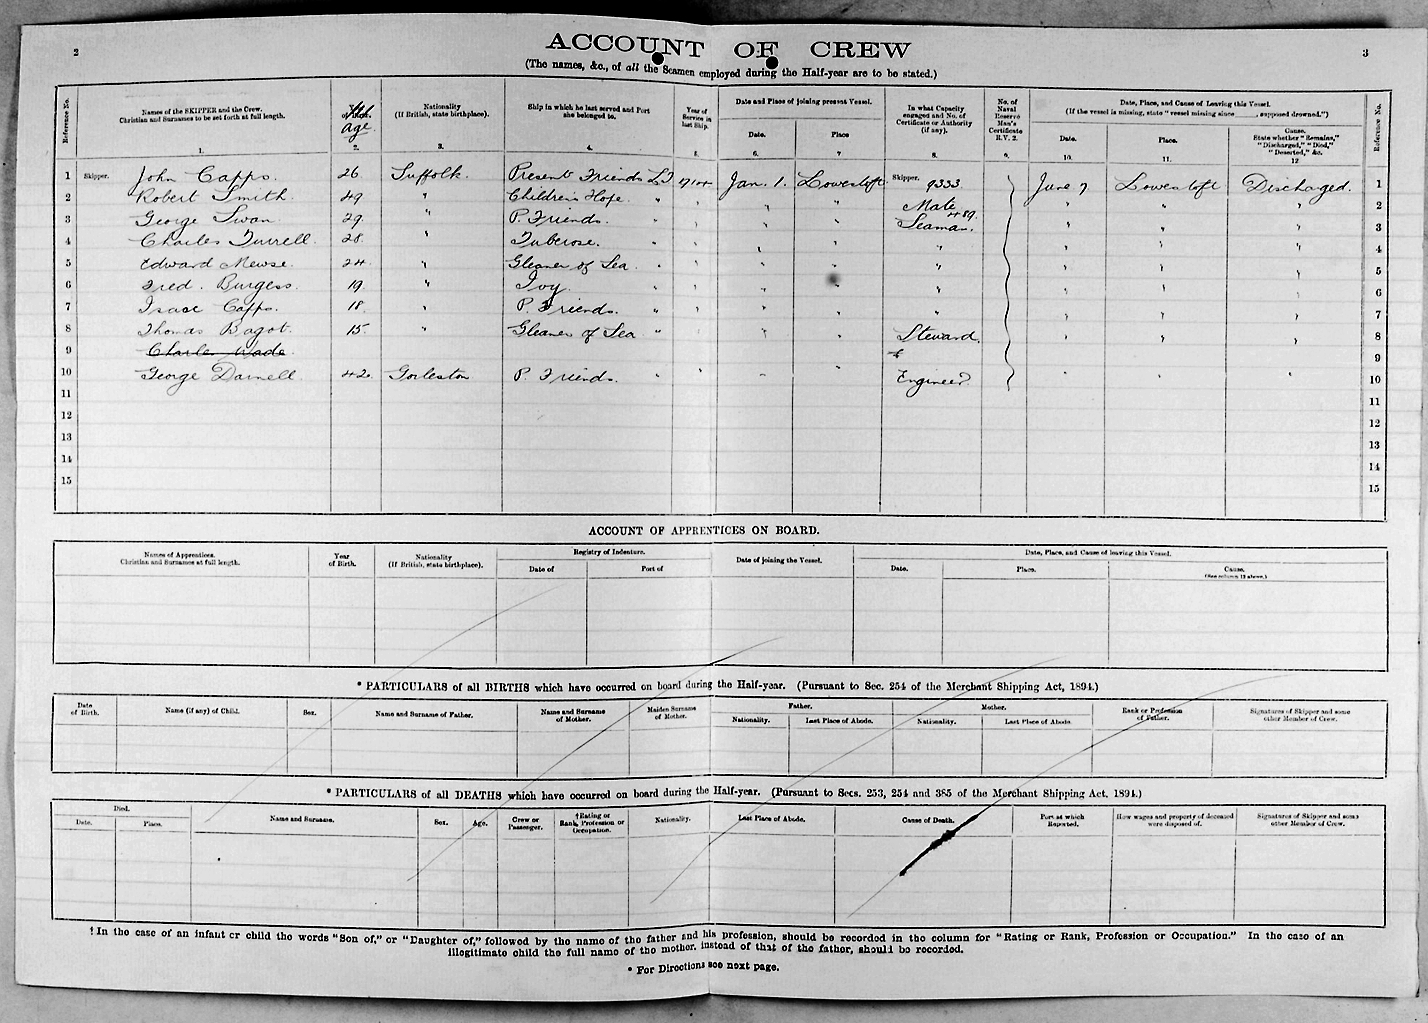 2
ACCOUNT OF CREW
3
(The names, &c., of all the Seamen employed during the Half-year are to be stated.)
Reference No.
Names of the SKIPPER and the Crew.
Christian and Surnames to be set forth at full length.
1.
age
2.
Nationality
(If British, state birthplace).
3.
Ship in which he last served and Port
she belonged to.
4.
Year of
Service in
last Ship.
5.
Date and Place of joining present Vessel.
Date.
6.
Place
7.
In what Capacity
engaged and No. of
Certificate or Authority
(if any).
8.
No. of
Naval
Reserve
Man's
Certificate
R.V. 2.
9.
Date, Place, and Cause of Leaving this Vessel.
(If the vessel is missing, state "vessel missing since ____, supposed drowned.")
Date.
10.
Place.
11.
Cause.
State whether "Remains,"
"Discharged," "Died,"
"Deserted," &c.
12
Reference No.
1 Skipper. John Capps. 26 Suffolk. Present Friends LT 1914 Jan. 1. Lowestoft Skipper. 9333 June 7 Lowestoft Discharged. 1
2 Robert Smith. 49 " Children's Hope. " " " " Mate 489. " " " 2
3 George Swan. 29. " P. Friends. " " " " Seaman. " " " 3
4 Charles Turrell. 28. " Tuberose. " " " " " " " " 4
5 Edward Mewse. 24. " Gleaner of Sea. " " " " " " " " 5
6 Fred. Burgess. 19. " Ivy. " " " " " " " " 6
7 Isaac Capps. 18. " P. Friends. " " " " " " " " 7
8 Thomas Bagot. 15. " Gleaner of Sea " " " " Steward. " " " 8
9 Charles Wade. 9
10 George Darnell. 42. Gorleston P. Friends. " " " " Engineer. " " " 10
11 11
12 12
13 13
14 14
15 15
ACCOUNT OF APPRENTICES ON BOARD.
Names of Apprentices.
Christian and Surnames at full length.
Year
of Birth.
Nationality
(If British, state birthplace).
Registry of Indenture.
Date of
Port of
Date of joining the Vessel.
Date, Place, and Cause of leaving this Vessel.
Date.
Place.
Cause.
(See column 12 above.)
* PARTICULARS of all BIRTHS which have occurred on board during the Half-year. (Pursuant to Sec. 254 of the Merchant Shipping Act, 1894.)
Date
of Birth.
Name (if any) of Child.
Sex.
Name and Surname of Father.
Name and Surname
of Mother.
Maiden Surname
of Mother.
Father.
Nationality.
Last Place of Abode.
Mother.
Nationality.
Last Place of Abode.
Rank or Profession
of Father.
Signatures of Skipper and some
other Member of Crew.
* PARTICULARS of all DEATHS which have occurred on board during the Half-year. (Pursuant to Secs. 253, 254 and 385 of the Merchant Shipping Act, 1894.)
Died.
Date.
Place.
Name and Surname.
Sex.
Age.
Crew or
Passenger.
†Rating or
Rank, Profession or
Occupation.
Nationality.
Last Place of Abode.
Cause of Death.
Port at which
Reported.
How wages and property of deceased
were disposed of.
Signatures of Skipper and some
other Member of Crew.
† In the case of an infant or child the words "Son of," or "Daughter of," followed by the name of the father and his profession, should be recorded in the column for "Rating or Rank, Profession or Occupation." In the case of an
illegitimate child the full name of the mother, instead of that of the father, should be recorded.
* For Directions see next page.